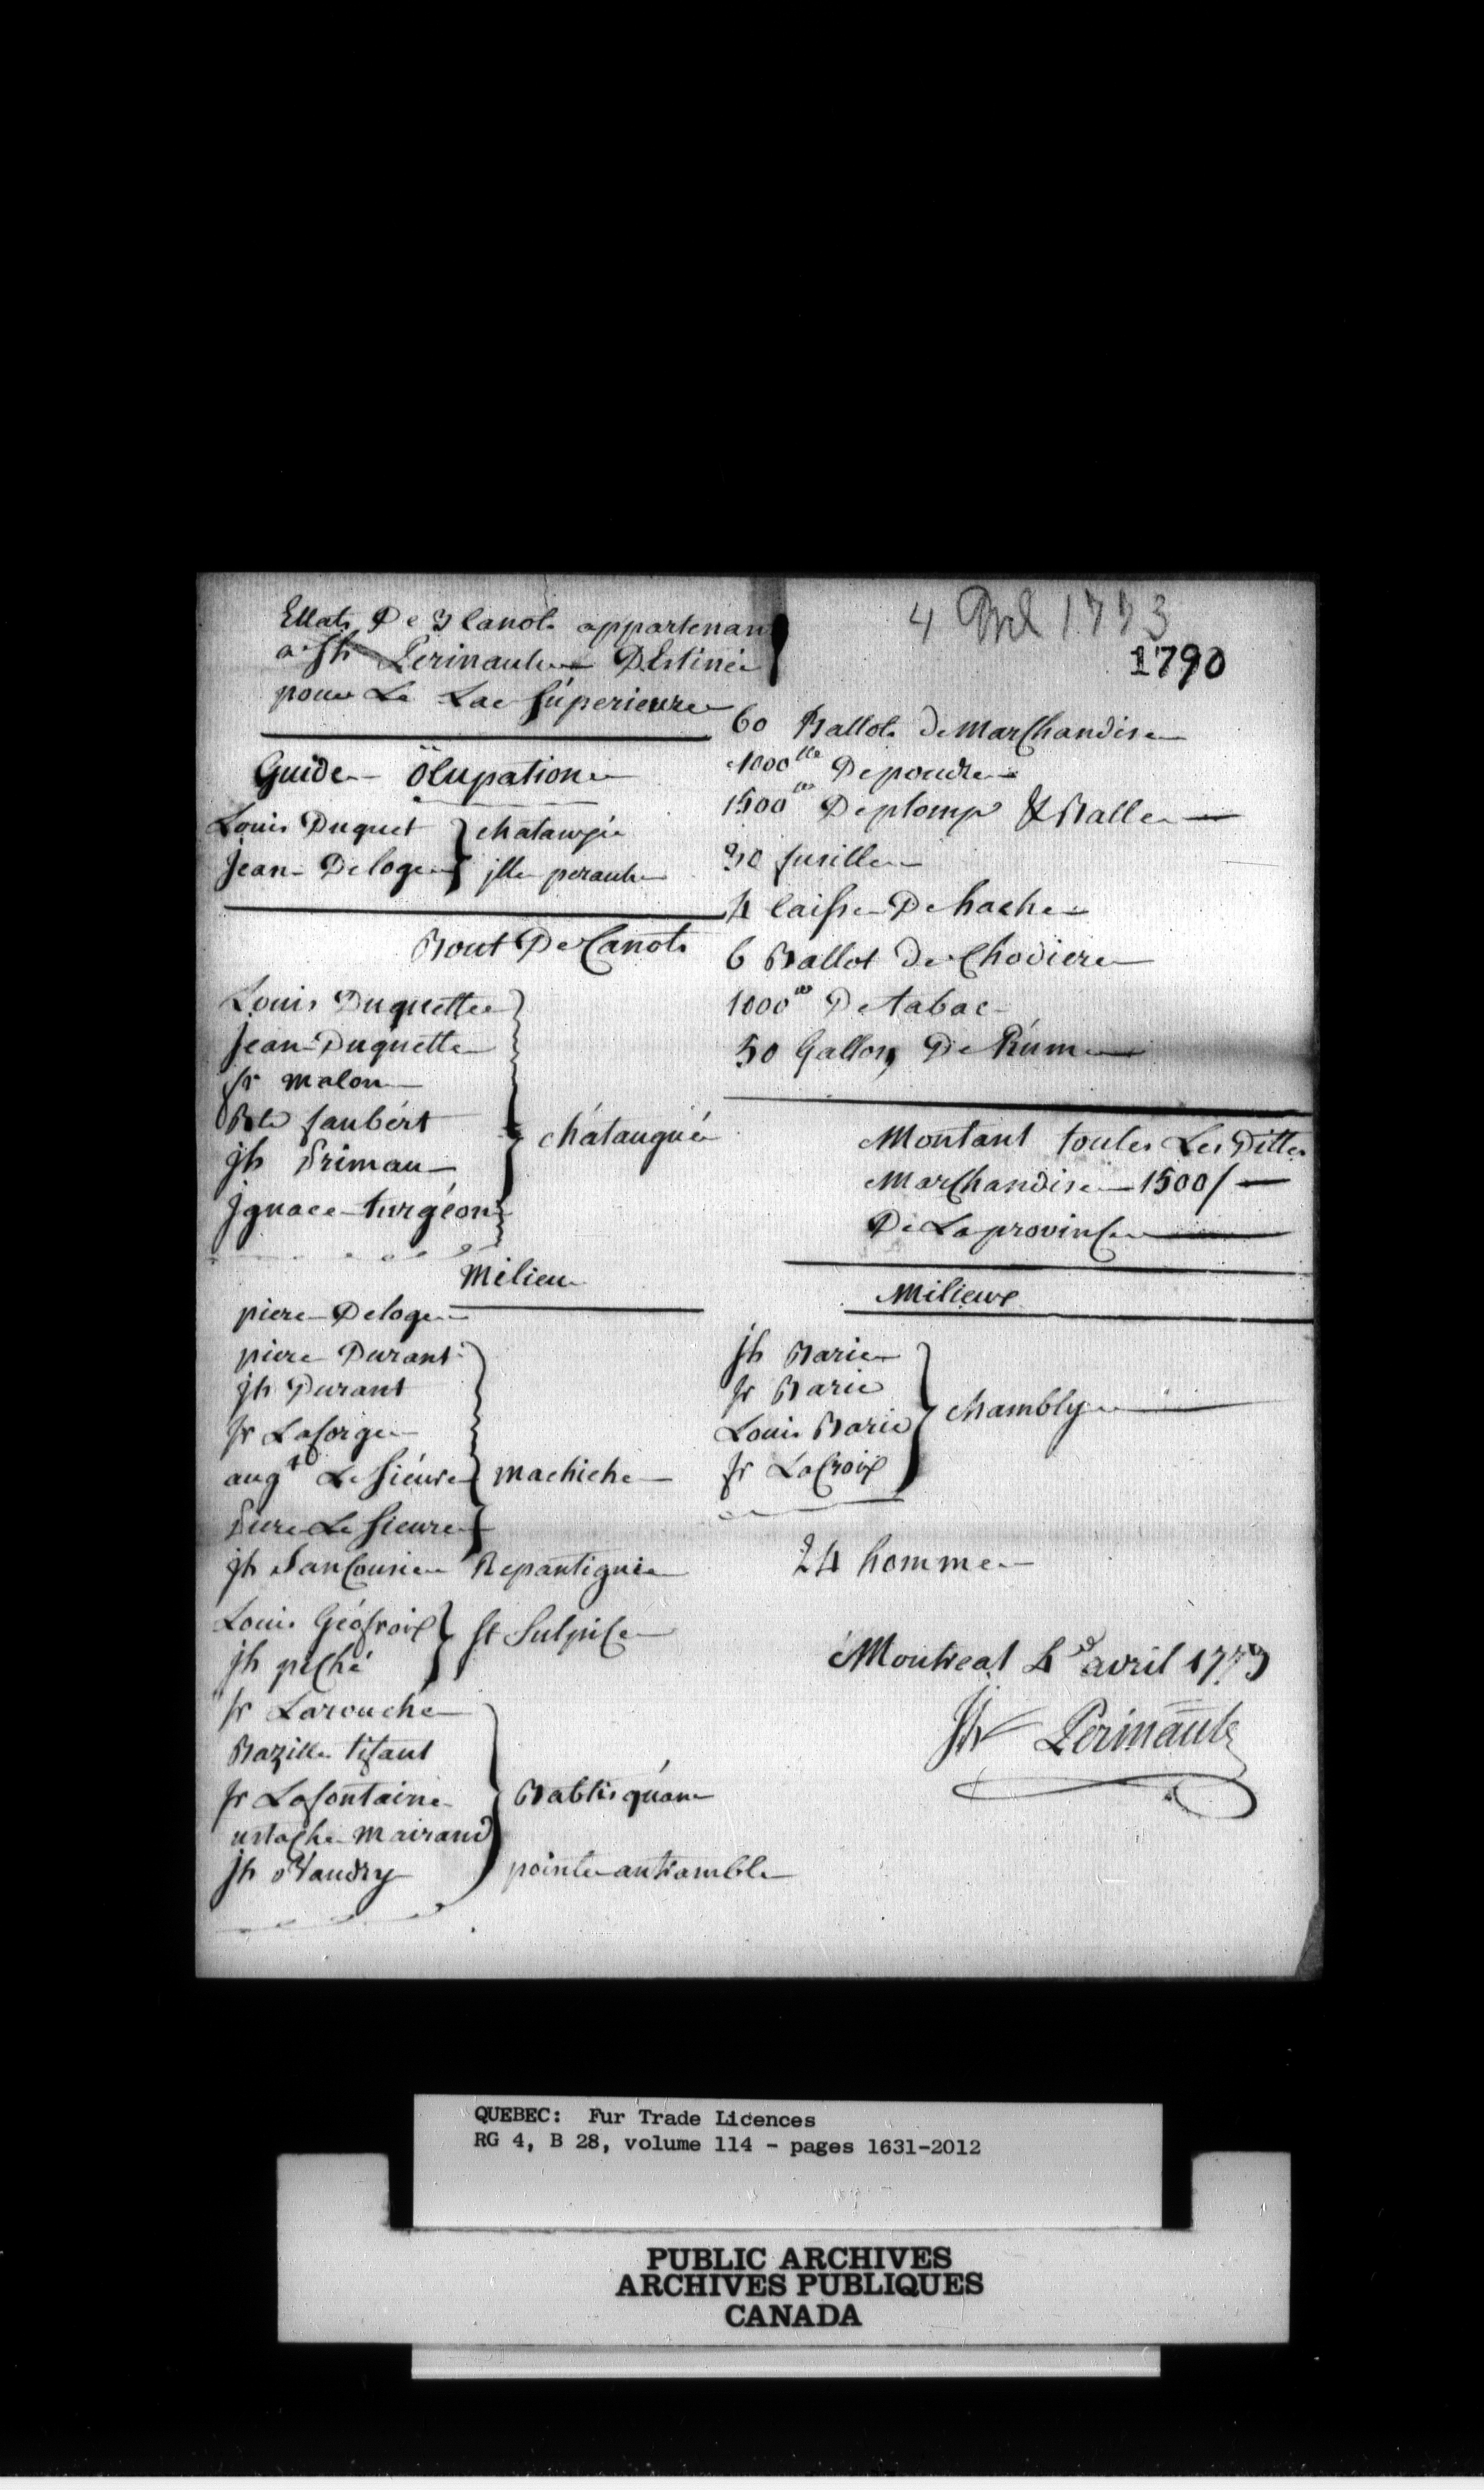 Ettats De 3 Canots appartenant
a Jh Perinault Destinée
pour Le Lac Supérieure
Guide Ocupation
Louis Duquet chataugie
Jean Deloge ille peraulte
Bout De Canots
Louis Duquette
Jean Duquette
fr malon
Bte faubért
jh Primau
Jgnace turgéon
chátaugué
Milieu
piere Deloge
piere Durant
jh Durant
fr Laforge
augt Le Siéure machiche
Piere Le Sieure
jh Sancousie Repantignie
Louis Géofroix St Sulpice
jh piché
fr Larouche
Bazille tifaut
fr Lafontaine Batisquane
ustache Mairand
jh Vaudry pointe autramble
4 Avl 1773
1790
60 Ballots De Marchandise
1000 lle De poudre
1500 De plomp & Balle
30 fusille
4 Caisse De hache
6 Ballot De Chodiere
1000 De tabac
50 Gallons De Rúm
Montant toutes Les Dittes
Marchandise 1500/
De La province
Milieux
jh Barie
fr Barie
Louis Barie
fr LaCroix
Chambly
24 homme
Montreal 4 avril 1773
Jh Perinault
QUEBEC: Fur Trade Licences
RG 4, B 28, volume 114 - pages 1631-2012
PUBLIC ARCHIVES
ARCHIVES PUBLIQUES
CANADA